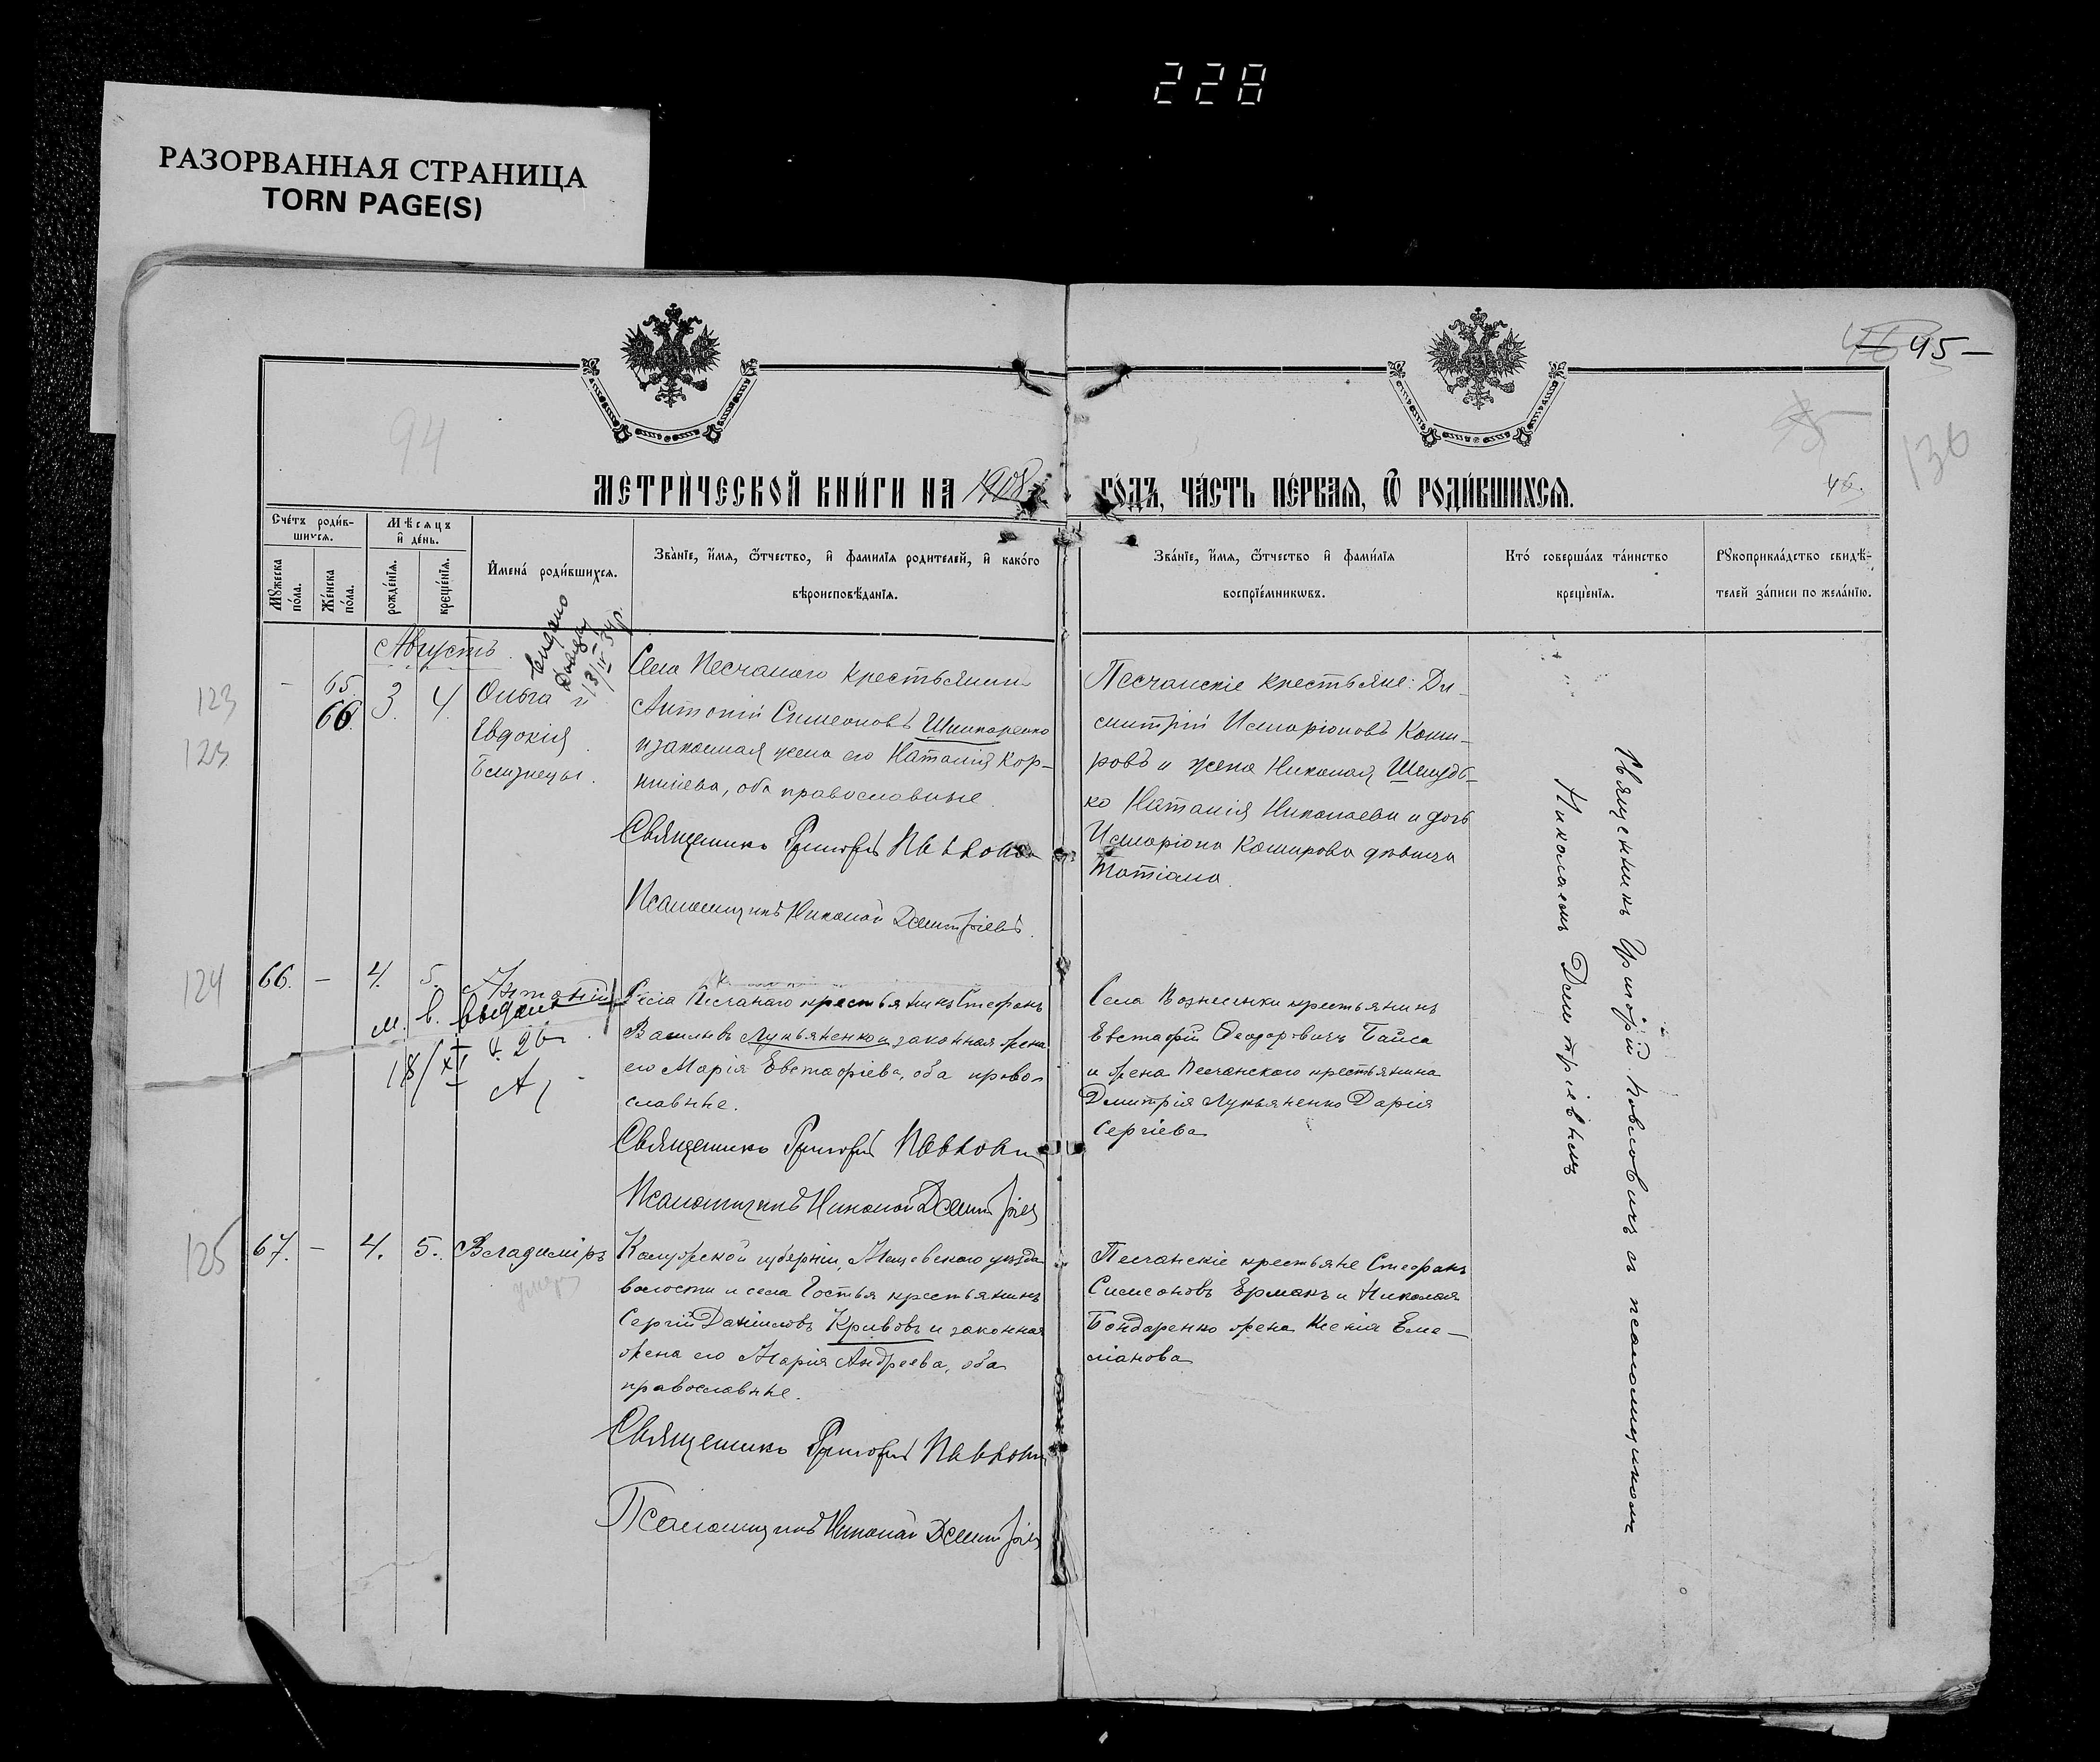 228
РАЗОРВАННАЯ СТРАНИЦА
TORN PAGE(S)
45 —
94
136
МЕТРИ́ЧЕСКОЙ КНИ́ГИ НА 1908 ГОДЪ, ЧА́СТЬ ПЕ́РВАЯ, Ѿ РОДИ́ВШИХСЯ.
46.
Сче́тъ роди́вшихся.
Мꙋ́жеска по́ла.
Же́нска по́ла.
Мѣ́сяцъ и҆ де́нь.
рожде́нїя.
креще́нїя.
И҆мена̀ роди́вшихся.
Зва́нїе, и҆́мя, ѻ҆́тчество, и҆ фами́лїя роди́телей, и҆ како́го
вѣроисповѣ́данїя.
Зва́нїе, и҆́мя, ѻ҆́тчество и҆ фами́лїя
воспрїе́мникѡвъ.
Кто̀ соверша́лъ та́инство
креще́нїя.
Рꙋкоприкла́дство свидѣ́-
телей за́писи по жела́нїю.
Августъ.
выдано
13/IV 34 р
123
123
-
65.
66.
3.
4.
Ольга и
Евдокія
близнецы.
Села Песчанаго крестьянинъ
Антоній Симеоновъ Шинкаренко
и законная жена его Наталія Кор-
ниліева, оба православные.
Священникъ Григорій Павлович
Псаломщикъ Николай Димитріевъ.
Песчанскіе крестьяне: Ди-
митрій Иларіоновъ Каши-
ровъ и жена Николая Шмудь-
ко Наталія Николаева и дочь
Иларіона Каширова дѣвица
Татіана.
Священникъ Григорій Павловичъ съ псаломщикомъ
Николаемъ Димитріевымъ
124
66.
-
4.
5.
Антоній
м. в. выдан
18/XI
Села Песчанаго крестьянинъ Стефанъ
Васильевъ Лукьяненко и законная жена
его Марія Евстафіева, оба право-
славные.
Священникъ Григорій Павлович
Псаломщикъ Николай Димитріев
Села Вознесенки крестьянинъ
Евстафій Ѳеодоровичъ Байса
и жена Песчанскаго крестьянина
Димитрія Лукьяненко Дарія
Сергіева
125
67.
-
4.
5.
Владиміръ
умер
Калужской губерніи, Мещевскаго уѣзда
волости и села Гостья крестьянинъ
Сергій Даніиловъ Кривовъ и законная
жена его Марія Андреева, оба
православные.
Священникъ Григорій Павлович
Псаломщикъ Николай Димитріев
Песчанскіе крестьяне Стефанъ
Симеоновъ Ермакъ и Николая
Бондаренко жена Ксенія Еме-
ліанова